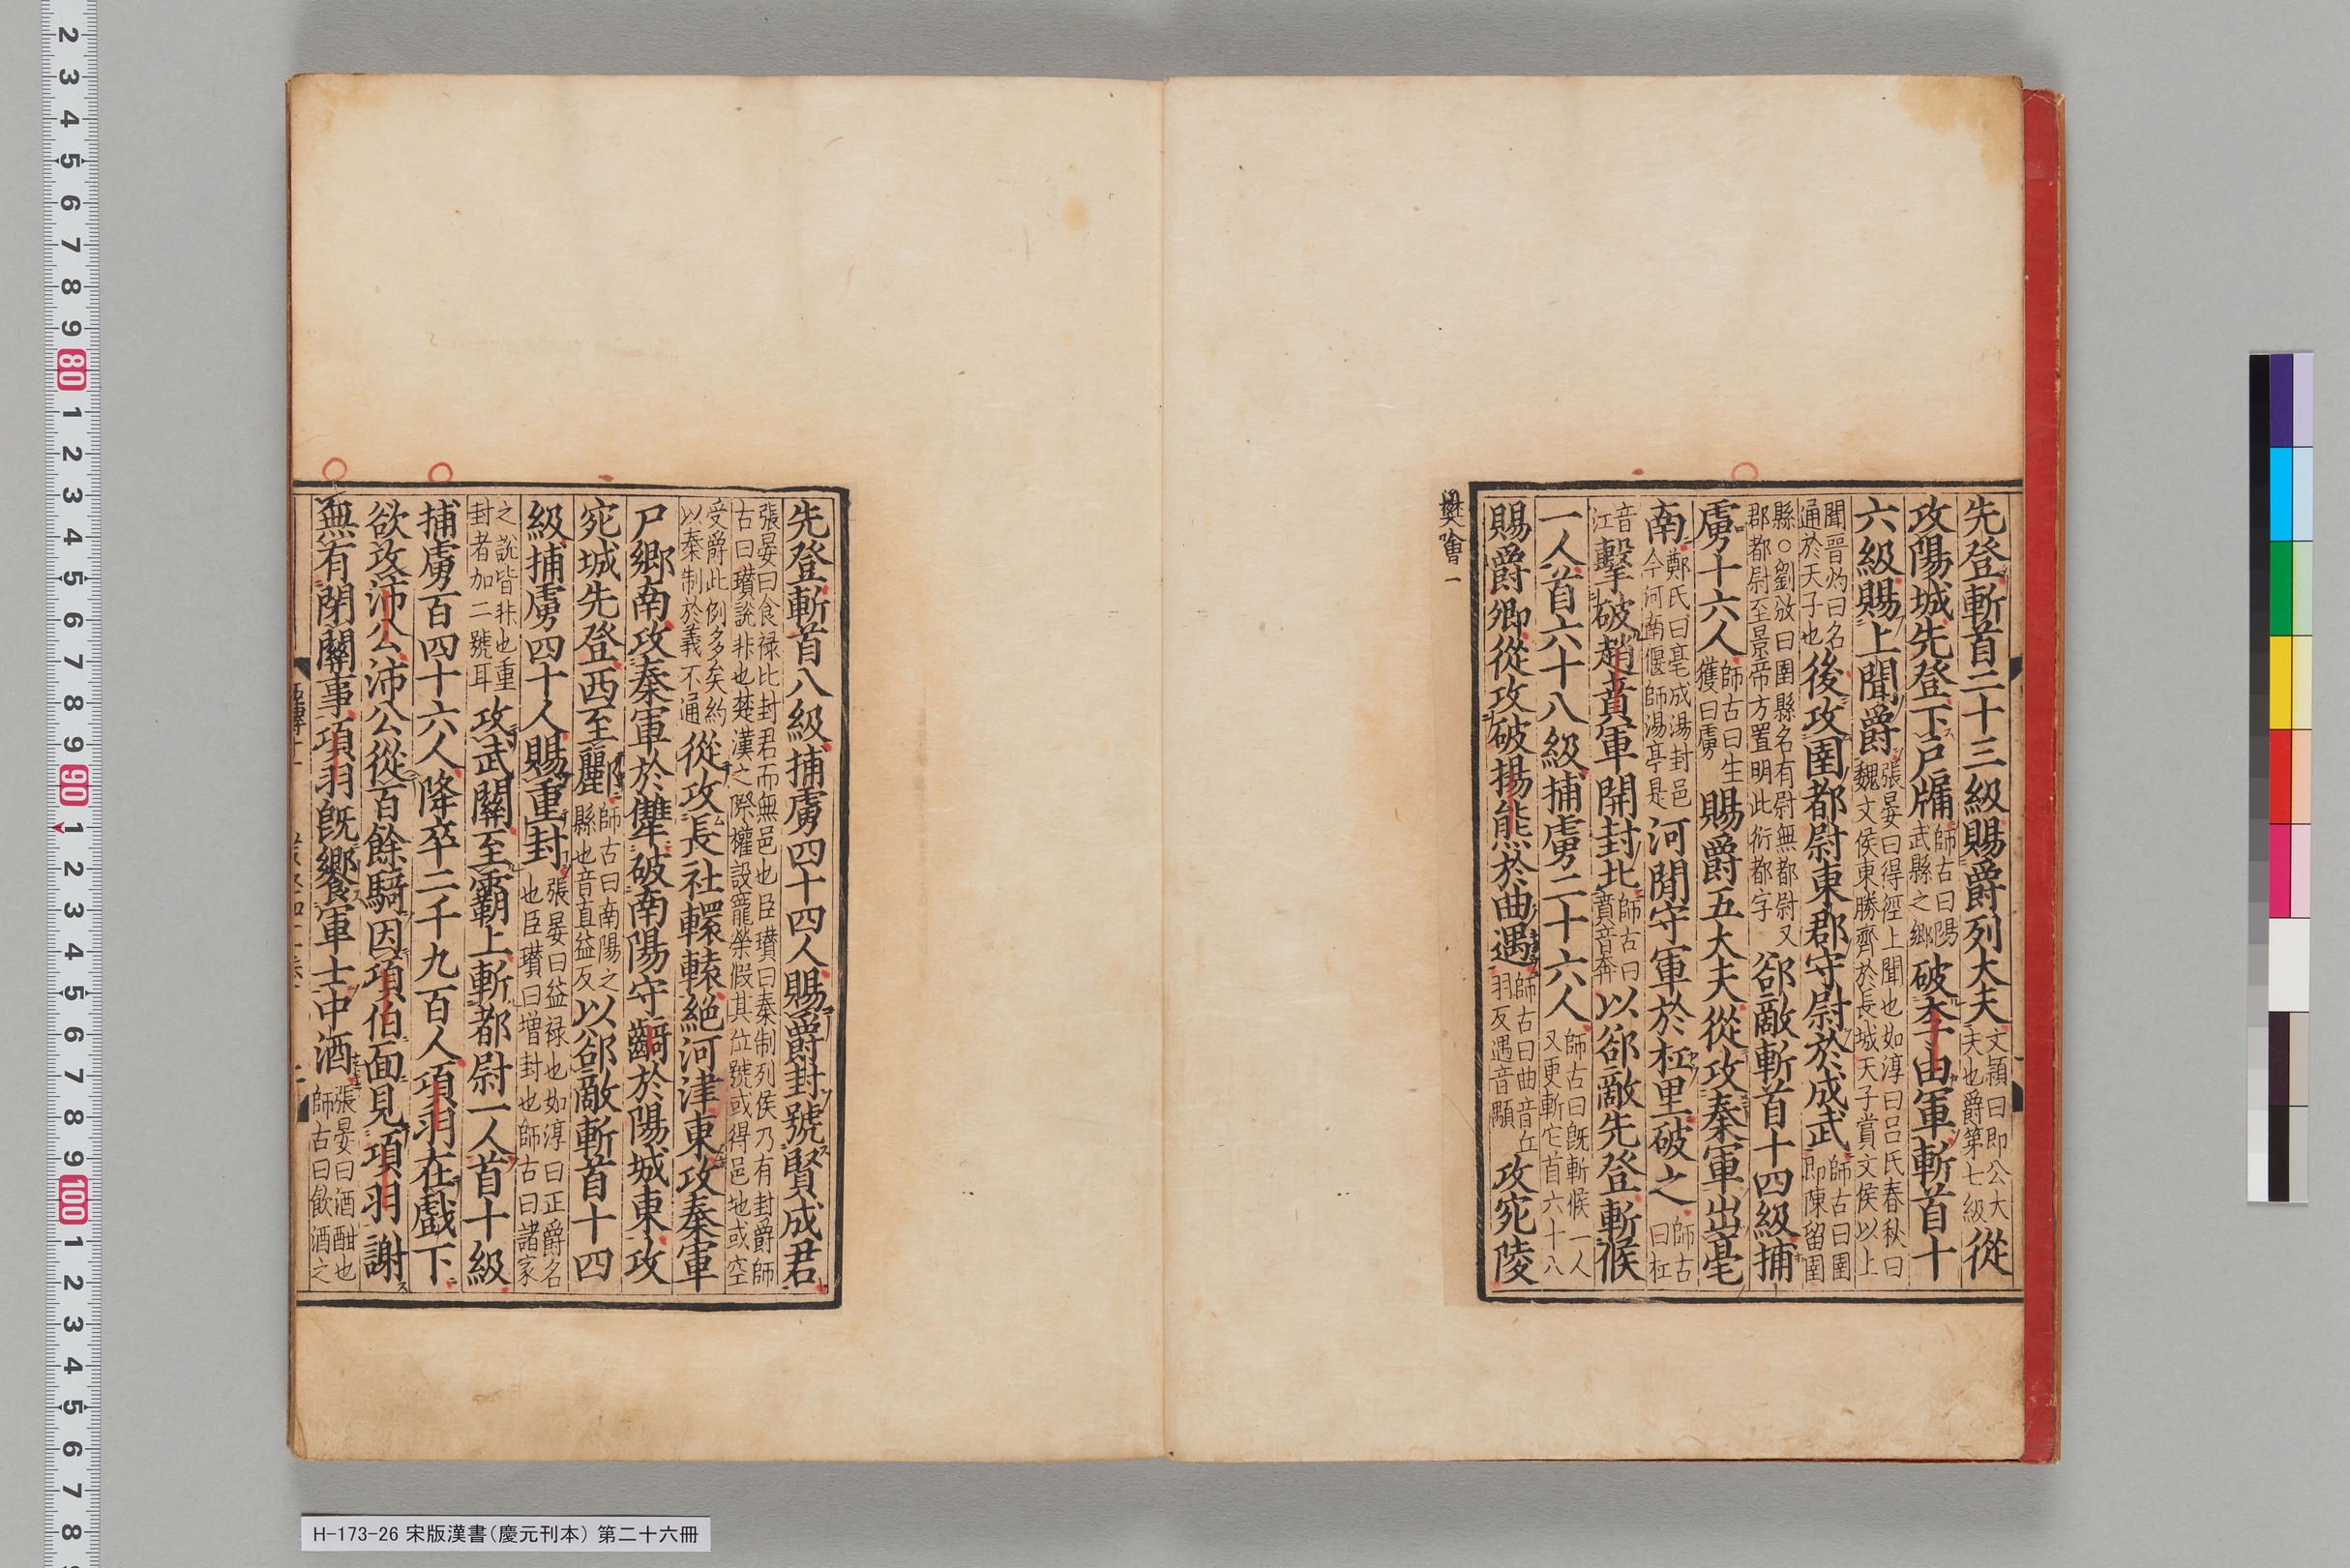 先登斬首二十三級賜爵列大夫文穎曰即公大夫也爵第七級從
攻陽城先登下戶牖師古曰陽武縣之鄉破李由軍斬首十
六級賜上聞爵張晏曰得徑上聞也如淳曰呂氏春秋曰魏文侯東勝齊於長城天子賞文侯以上
聞晉灼曰名通於天子也後攻圉都尉東郡守尉於成武師古曰圉即陳留圉
縣○劉攽曰圉縣名有尉無都尉又郡都尉至景帝方置明此衍都字郤敵斬首十四級捕
虜十六人師古曰生獲曰虜賜爵五大夫從攻秦軍出亳
南鄭氏曰亳成湯封邑今河南偃師湯亭是河閒守軍於杠里破之師古曰杠
音江擊破趙賁軍開封北師古曰賁音奔以郤敵先登斬候
一人首六十八級捕虜二十六人師古曰既斬候一人又更斬它首六十八
賜爵卿從攻破揚熊於曲遇師古曰曲音丘羽反遇音顒攻宛陵
樊噲一
先登斬首八級捕虜四十四人賜爵封號賢成君
張晏曰食祿比封君而無邑也臣瓚曰秦制列侯乃有封爵師古曰瓚說非也楚漢之際權設寵榮假其位號或得邑地或空
受爵此例多矣約以秦制於義不通從攻長社轘轅絕河津東攻秦軍
尸鄉南攻秦軍於犨破南陽守齮於陽城東攻
宛城先登西至酈師古曰南陽之縣也音直益反以郤敵斬首十四
級捕虜四十人賜重封張晏曰益祿也如淳曰正爵名也臣瓚曰增封也師古曰諸家
之說皆非也重封者加二號耳攻武關至霸上斬都尉一人首十級
捕虜百四十六人降卒二千九百人項羽在戲下
欲攻沛公沛公從百餘騎因項伯面見項羽謝
無有閉關事項羽既饗軍士中酒張晏曰酒酣也師古曰飲酒之
H-173-26 宋版漢書(慶元刊本) 第二十六冊
2 3 4 5 6 7 8 9 80 1 2 3 4 5 6 7 8 9 90 1 2 3 4 5 6 7 8 9 100 1 2 3 4 5 6 7 8